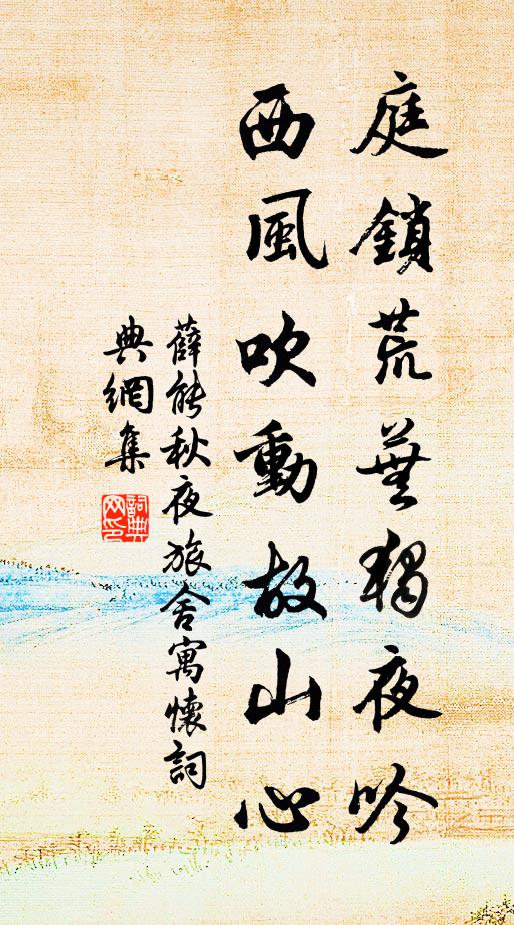 庭鎖荒蕪獨夜吟
西風吹動故山心
薛能秋夜旅舍寓懷詞
典網集
詞典網印